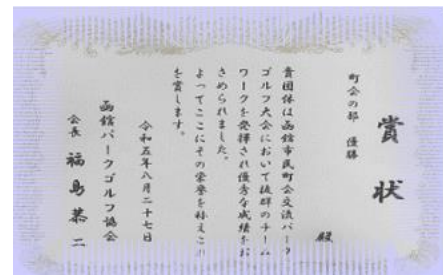 賞状
町会の部 優勝
殿
貴団体は函館市民町会交流パーク
ゴルフ大会において抜群のチーム
ワークを発揮され優秀な成績をお
さめられました。
よってここにその栄誉を称えこれ
を賞します。
令和五年八月二十七日
函館パークゴルフ協会
会長 福島恭二